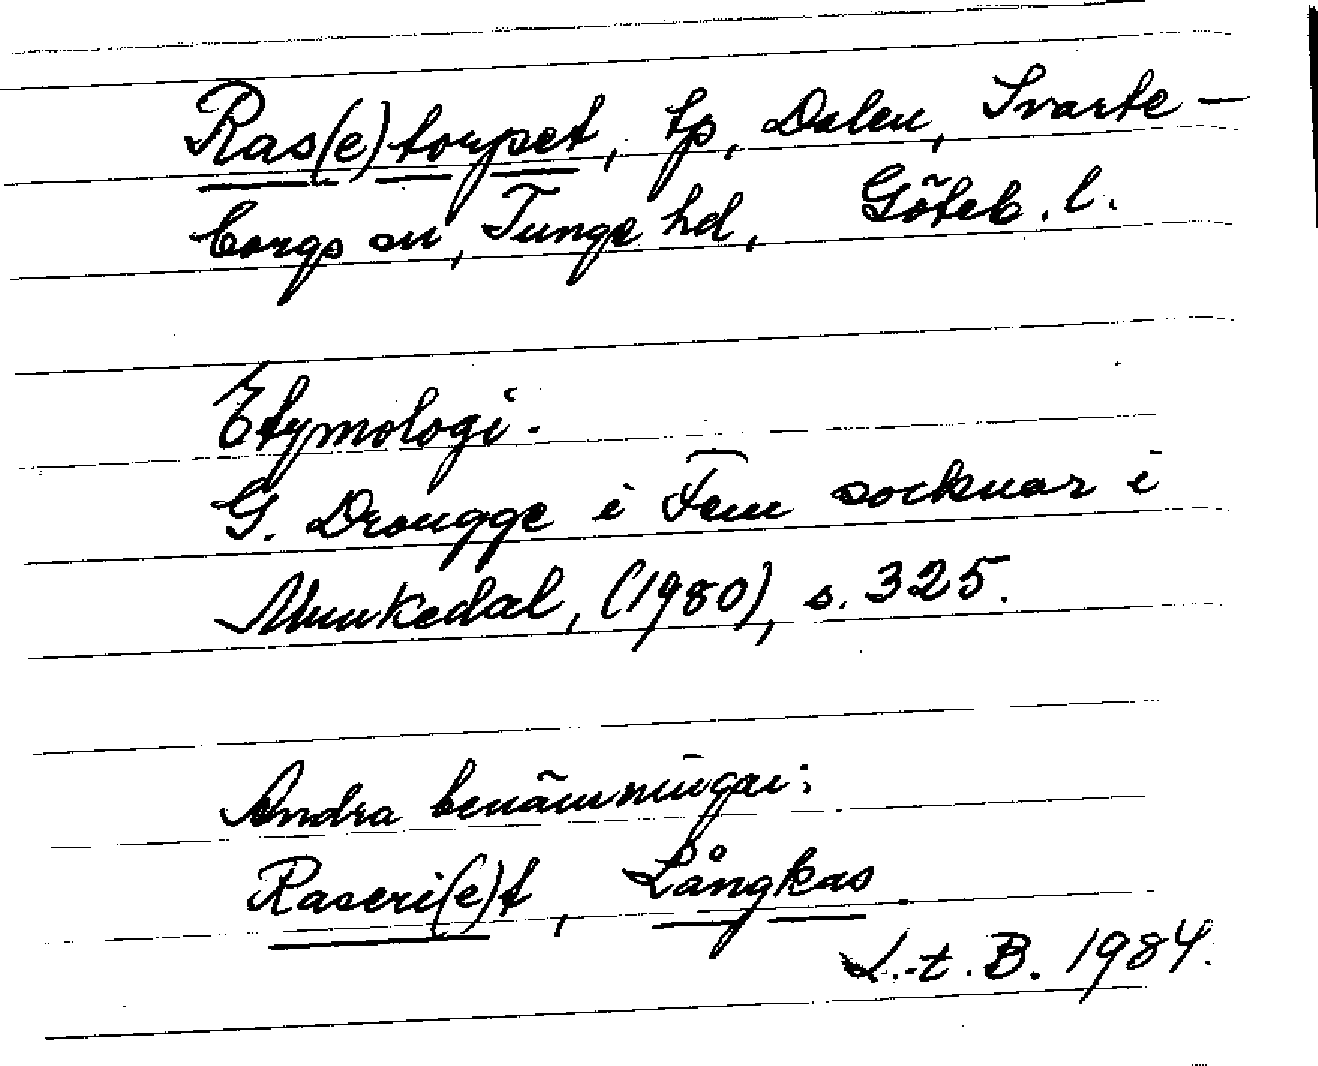 Ras(e)torpet, tp, Dalen, Svarte-
borgs sn, Tunge hd, Göteb. l.
Etymologi.
G. Drougge i Fem socknar i
Munkedal, (1980), s. 325.
Andra benämningar:
Raseri(e)t, Långkas
L.-t. B. 1984.